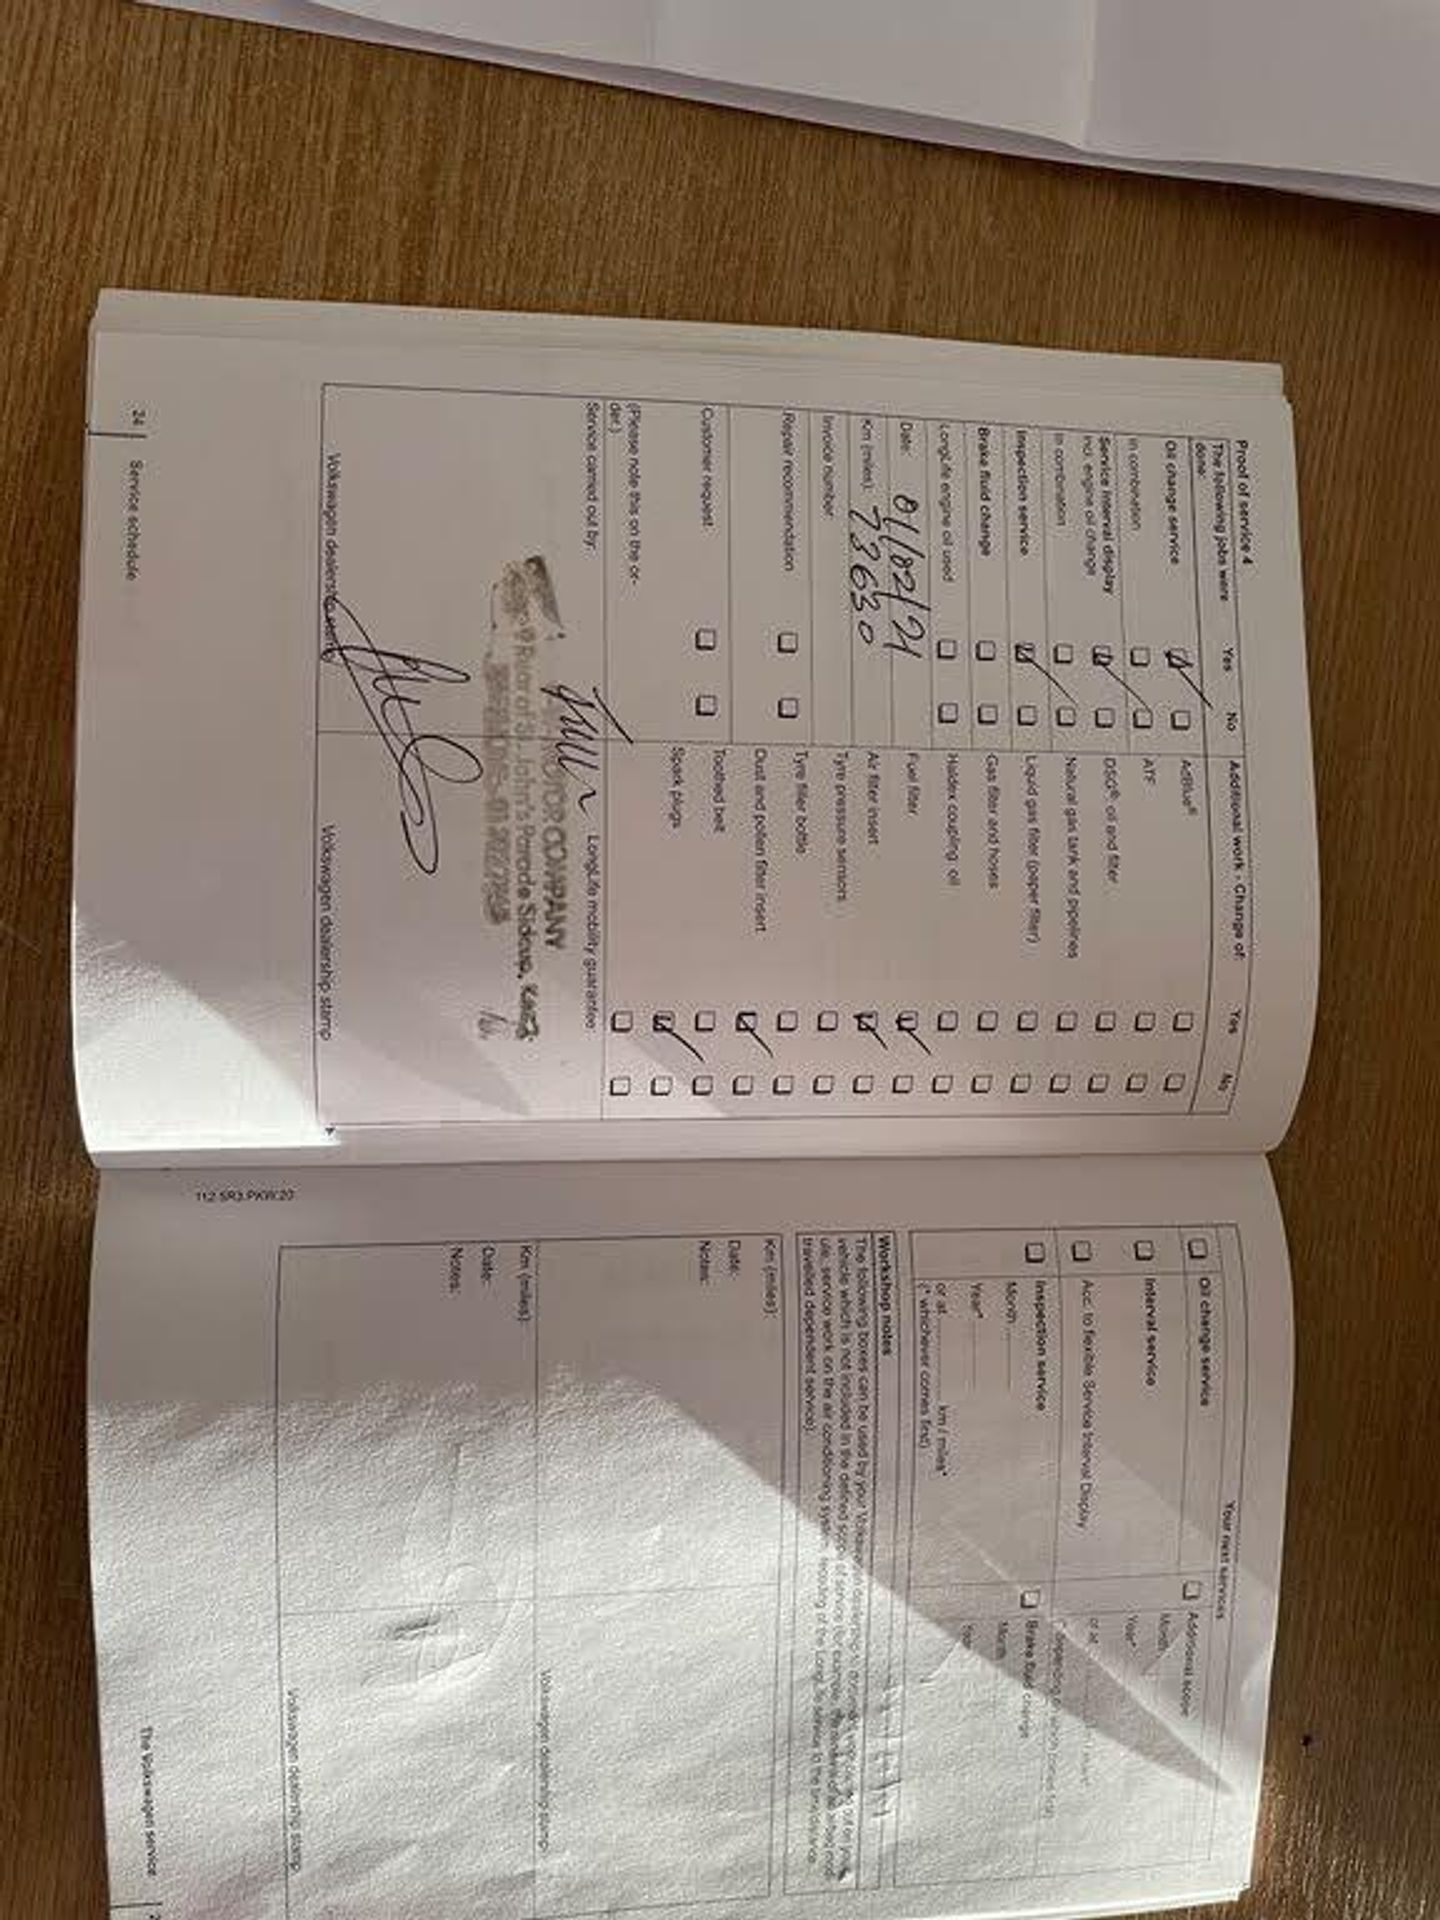 Proof of service 4
The following jobs were done: Yes No
Oil change service
in combination
Service interval display
incl. engine oil change
in combination
Inspection service
Brake fluid change
LongLife engine oil used
Date: 01/02/24
Km (miles): 73630
Invoice number:
Repair recommendation
Customer request:
(Please note this on the or-
der.)
Additional work - Change of: Yes No
AdBlue®
ATF
DSG® oil and filter
Natural gas tank and pipelines
Liquid gas filter (paper filter)
Gas filter and hoses
Haldex coupling oil
Fuel filter
Air filter insert
Tyre pressure sensors
Tyre filler bottle
Dust and pollen filter insert
Toothed belt
Spark plugs
Service carried out by:
LongLife mobility guarantee
MOTOR COMPANY
Rear of St. John's Parade Sidcup, Kent
Volkswagen dealership stamp
Volkswagen dealership stamp
24 Service schedule
Your next services
Oil change service
Interval service
Acc. to flexible Service Interval Display
Inspection service
Month
Year*
or at km / miles*
(* whichever comes first)
Additional scope
Month
Year*
or at
Brake fluid change
Month
Year
Workshop notes
The following boxes can be used by your Volkswagen dealership
vehicle which is not included in the defined scope of service (for example,
ule, service work on the air conditioning system, resetting of the LongLife service to the time/distance
travelled dependent service).
Km (miles):
Date:
Notes:
Volkswagen dealership stamp
Km (miles):
Date:
Notes:
Volkswagen dealership stamp
112.5R3.PKW.20
The Volkswagen service